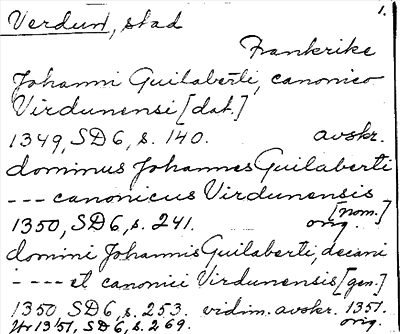 Verdun, stad 1.
Frankrike
Johanni Guilaberti, canonico
Virdunensi [dat.]
1349, SD6, s. 140. avskr.
dominus Johannes Guilaberti
--- canonicus Virdunensis
[nom.]
1350, SD6, s. 241. orig.
domini Johannis Guilaberti, decani
---- et canonici Virdunensis [gen.]
1350 SD6, s. 253. vidim. avskr. 1351.
1351, SD6, s. 269. orig.